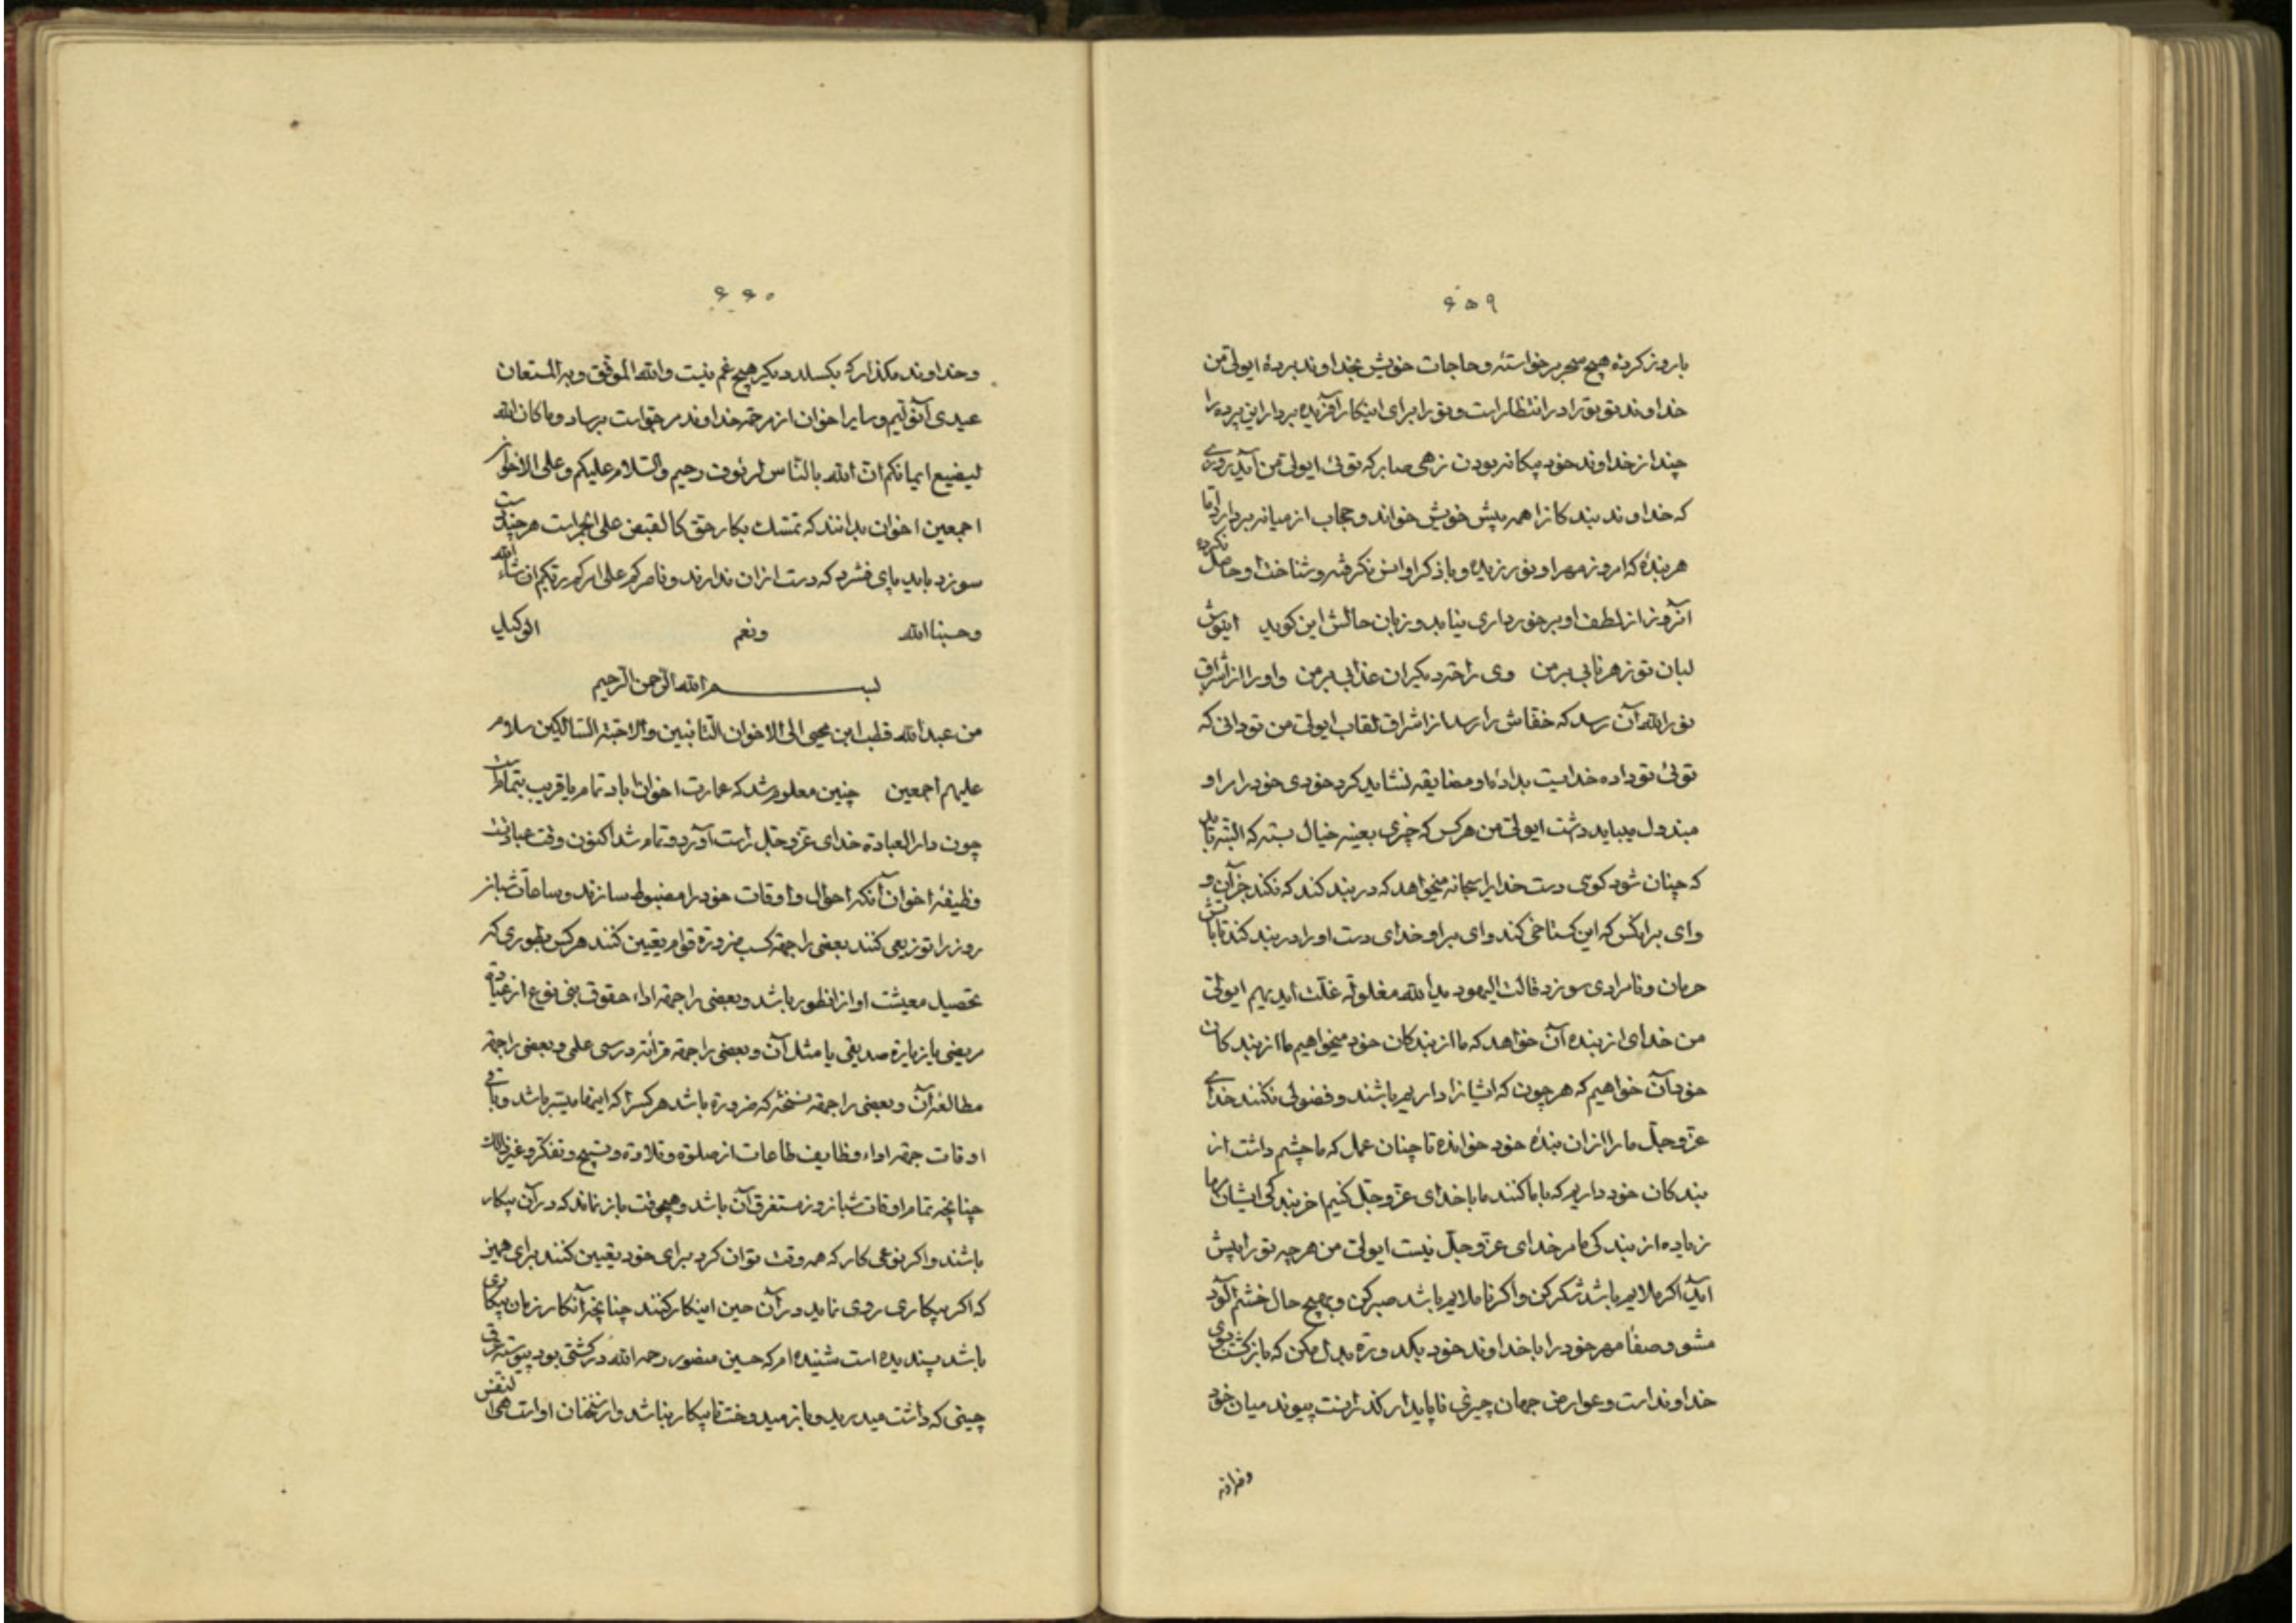 ۶۵۹
باروز کرده هیچ سحر برخواسته و حاجات خویش بخداوند برده ایولی من
خداوند تو ترا در انتظار است و تو را برای اینکار آفریده بردار این پرده را
چند از خداوند خود بیکانه بودن زهی صابر که توئی ایولی من آید روزی
که خداوند بندکانرا همه پیش خویش خواند و حجاب از میانه بردارد اما
هر بندهٔ که امروز مهر او نورزیده و با ذکر او انس نکرفته و شناخت او حاصل نکرده
آنروز از لطف او برخورداری نیابد و زبان حالش این کوید ای نوش
لبان تو زهر نابی بر من وی راحت دیکران عذابی بر من و او را از اشراق
نور الله آن رسد که خفاش را رسد از اشراق آفتاب ایولی من تو دانی که
توئی تو داده خدایست بدادهٔ او مضایقه نشاید کرد خودی خود را مر او
مبذول میباید داشت ایولی من هر کس که چیزی بعینه خیال بسته که البته باید
که چنان شود کوئی دست خدایرا سبحانه میخواهد که در بند کند که نکند جز آن و
وای بر آنکس که این کستاخی کند وای بر او خدای دست او را در بند کند تا بآتش
حرمان و نامرادی سوزد قالت الیهود ید الله مغلولة غلت ایدیهم ایولی
من خدای از بنده آن خواهد که ما از بندکان خود میخواهیم ما از بندکان
خود آن خواهیم که هر چون که ایشانرا داریم باشند و فضولی نکنند خدای
عز و جل ما را از آن بندهٔ خود خوانده تا چنان عمل که ما چشم داشت از
بندکان خود داریم که با ما کنند ما با خدای عز و جل کنیم آخر بندکی ایشان ما را
زیاده از بندکی ما مر خدای عز و جل نیست ایولی من هر چه تو را پیش
آید اکر ملایم باشد شکر کن و اکر ناملایم باشد صبر کن و بهیچ حال خشم آلود
مشو و صفا مهر خود را با خداوند خود بکدورة بدل مکن که بازکشت بوی
خداوند است و عوارض جهان چیزی ناپایدار کذرانست پیوند میان خود
۶۶۰
و خداوند مکذار که بکسلد دیکر هیچ غم نیست والله الموفق و به المستعان
عیدی آتوآتیم و سایر اخوان از مرحمة خداوند درخواست برساد و ما کان الله
لیضیع ایمانکم ان الله بالناس لرئوف رحیم والسلام علیکم و علی الاخوان
اجمعین اخوان بدانند که تمسک بکار حق کالقبض علی الجمر است هر چند دست
سوزد باید پای فشرد که دست از آن ندارند و ناصرکم علی امرکم ربکم ان شاء الله
و حسبنا الله و نعم الوکیل
بسم الله الرحمن الرحیم
من عبدالله قطب ابن محیی الی الاخوان التائبین والاحبة السالکین سلام
علیهم اجمعین چنین معلوم شد که عمارت اخوان آباد تمام یا قریب بتمام است
چون دار العبادة خدای عز و جل راست آورد و تمام شد اکنون وقت عبادتست
وظیفهٔ اخوان آنکه احوال و اوقات خود را مضبوط سازند و ساعات شبانه
روز را توزیعی کنند بعضی را جهة کسب ضرورة قوام تعیین کنند هر کس بطوری که
تحصیل معیشت او از آنطور باشد و بعضی را جهة اداء حقوق بنی نوع از عیادة
مریضی یا زیارة صدیقی یا مثل آن و بعضی را جهة قرائة درسی علمی و بعضی را جهة
مطالعهٔ آن و بعضی را جهة نسخهٔ که ضرورة باشد هر کسرا که اینها میسر باشد و باقی
اوقات جهة اداء وظایف طاعات از صلوة و تلاوة و تسبیح و تفکر و غیر ذلک
چنانچه تمام اوقات شبانروز مستغرق آن باشد و هیچوقت باز نماند که در آن بیکار
باشند و اکر نوعی کار که همه وقت توان کرد برای خود تعیین کنند برای همین
که اکر بیکاری روی نماید در آن حین اینکار کنند چنانچه آنکار زمان بیکاری
باشد پسندیده است شنیده ام که حسین منصور رحمه الله در کشتی بود پیوسته خرقه
چینی که داشت میدرید و باز میدوخت تا بیکار نباشد و از سخنان او است هی النفس